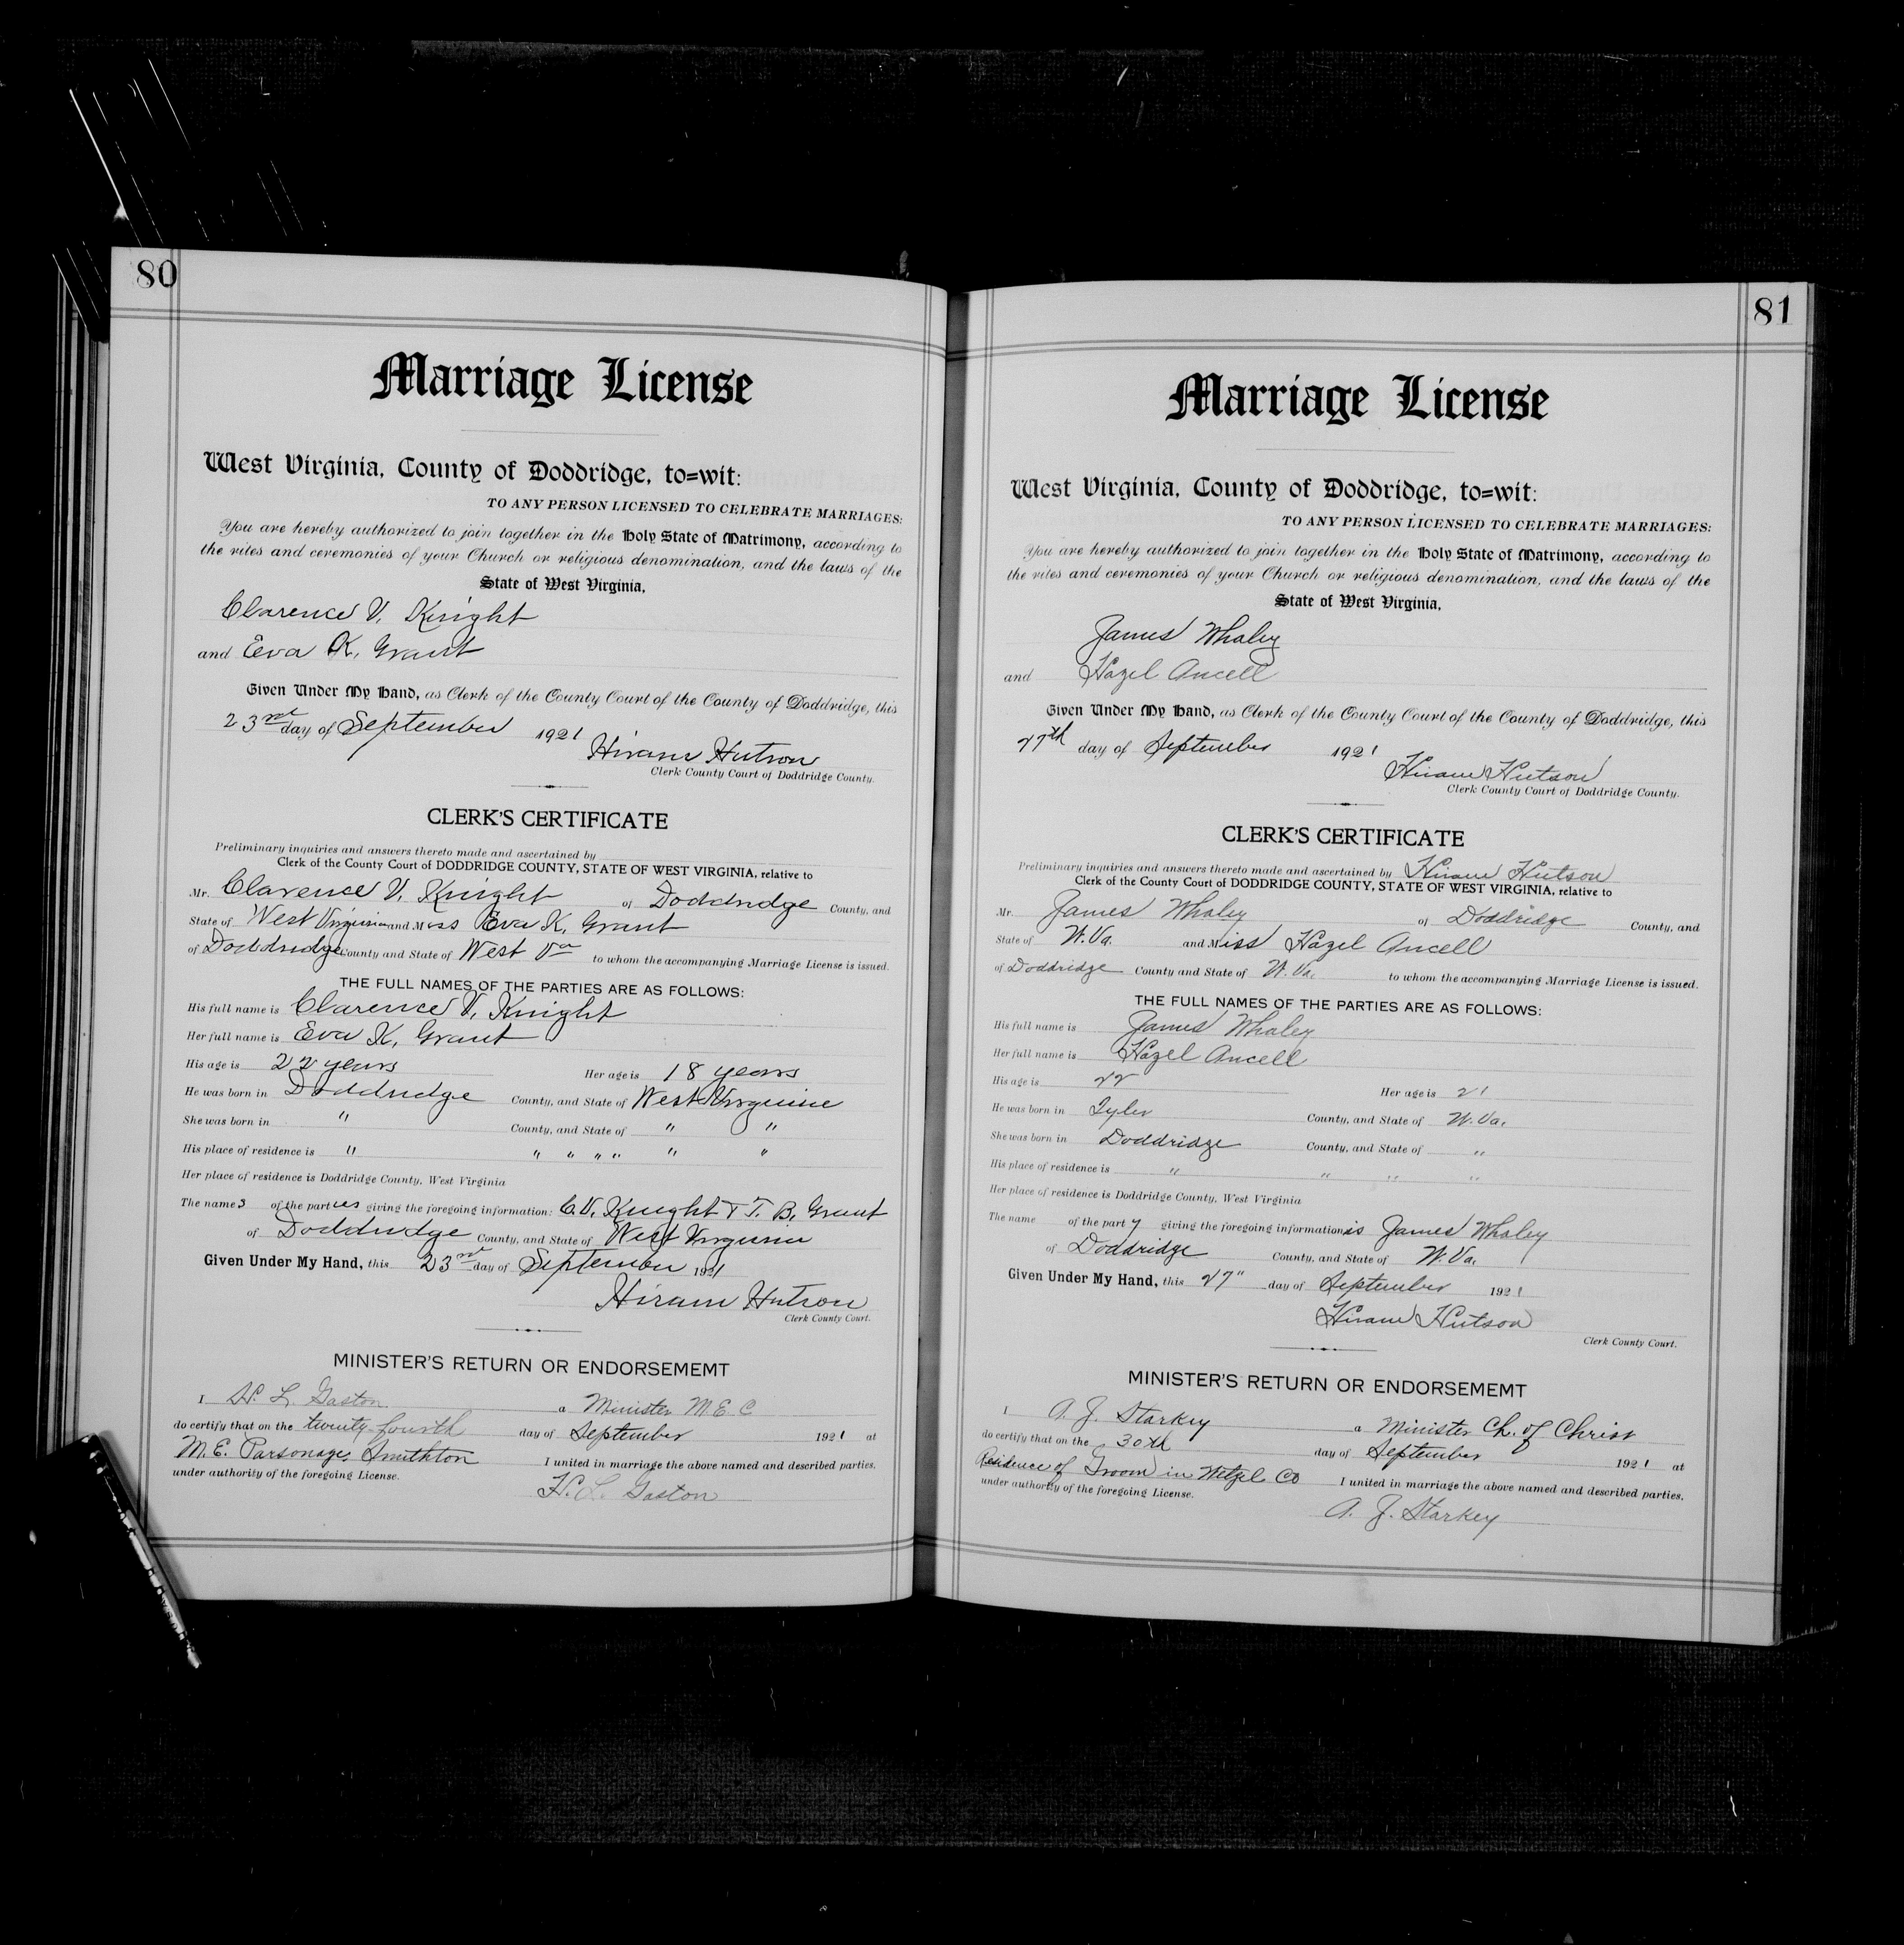 80
Marriage License
West Virginia, County of Doddridge, to=wit:
TO ANY PERSON LICENSED TO CELEBRATE MARRIAGES:
You are hereby authorized to join together in the Holy State of Matrimony, according to
the rites and ceremonies of your Church or religious denomination, and the laws of the
State of West Virginia,
Clarence V. Knight
and Eva K. Grant
Given Under My Hand, as Clerk of the County Court of the County of Doddridge, this
23rd day of September 1921
Hiram Hutson
Clerk County Court of Doddridge County.
CLERK'S CERTIFICATE
Preliminary inquiries and answers thereto made and ascertained by
Clerk of the County Court of DODDRIDGE COUNTY, STATE OF WEST VIRGINIA, relative to
Mr. Clarence V. Knight of Doddridge County, and
State of West Virginia and Miss Eva K. Grant
of Doddridge County and State of West Va to whom the accompanying Marriage License is issued.
THE FULL NAMES OF THE PARTIES ARE AS FOLLOWS:
His full name is Clarence V. Knight
Her full name is Eva K. Grant
His age is 22 years Her age is 18 years
He was born in Doddridge County, and State of West Virginia
She was born in " County, and State of " "
His place of residence is " " " " " " "
Her place of residence is Doddridge County, West Virginia
The names of the parties giving the foregoing information: C.V. Knight + T. B. Grant
of Doddridge County, and State of West Virginia
Given Under My Hand, this 23rd day of September 1921
Hiram Hutson
Clerk County Court.
MINISTER'S RETURN OR ENDORSEMEMT
I H. L. Gaston a Minister M.E.C
do certify that on the twenty-fourth day of September 1921 at
M.E. Parsonage, Smithton I united in marriage the above named and described parties,
under authority of the foregoing License.
H. L. Gaston
81
Marriage License
West Virginia, County of Doddridge, to=wit:
TO ANY PERSON LICENSED TO CELEBRATE MARRIAGES:
You are hereby authorized to join together in the Holy State of Matrimony, according to
the rites and ceremonies of your Church or religious denomination, and the laws of the
State of West Virginia,
James Whaley
and Hazel Ancell
Given Under My Hand, as Clerk of the County Court of the County of Doddridge, this
27th day of September 1921
Hiram Hutson
Clerk County Court of Doddridge County.
CLERK'S CERTIFICATE
Preliminary inquiries and answers thereto made and ascertained by Hiram Hutson
Clerk of the County Court of DODDRIDGE COUNTY, STATE OF WEST VIRGINIA, relative to
Mr. James Whaley of Doddridge County, and
State of W. Va. and Miss Hazel Ancell
of Doddridge County and State of W. Va. to whom the accompanying Marriage License is issued.
THE FULL NAMES OF THE PARTIES ARE AS FOLLOWS:
His full name is James Whaley
Her full name is Hazel Ancell
His age is 22 Her age is 21
He was born in Tyler County, and State of W. Va.
She was born in Doddridge County, and State of "
His place of residence is " " " "
Her place of residence is Doddridge County, West Virginia
The name of the party giving the foregoing information is James Whaley
of Doddridge County, and State of W. Va.
Given Under My Hand, this 27" day of September 1921
Hiram Hutson
Clerk County Court.
MINISTER'S RETURN OR ENDORSEMEMT
I A. J. Starkey a Minister Ch. of Christ
do certify that on the 30th day of September 1921 at
Residence of Groom in Wetzel Co I united in marriage the above named and described parties,
under authority of the foregoing License.
A. J. Starkey